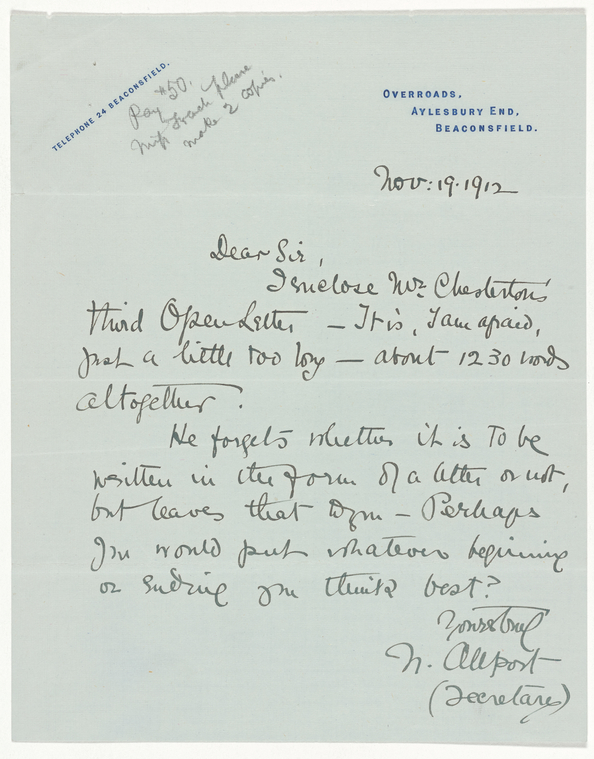 TELEPHONE 24 BEACONSFIELD.
Pay $50.
Miss Leach please
make 2 copies.
OVERROADS,
AYLESBURY END,
BEACONSFIELD.
Nov: 19. 1912
Dear Sir,
I enclose Mr. Chesterton's
third Open Letter — It is, I am afraid,
just a little too long — about 1230 words
altogether.
He forgets whether it is to be
written in the form of a letter or not,
but leaves that to you — Perhaps
you would put whatever beginning
or ending you think best?
Yours truly
N. Allport
(Secretary)